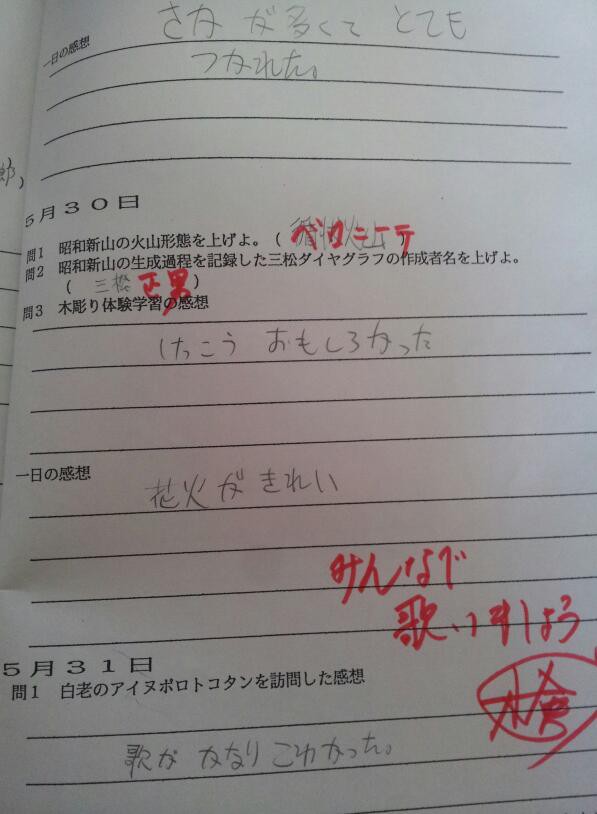 さかが多くてとても
一日の感想
つかれた。
郎)
5月30日
問1 昭和新山の火山形態を上げよ。( ベロニーテ )
問2 昭和新山の生成過程を記録した三松ダイヤグラフの作成者名を上げよ。
( 三松 正男 )
問3 木彫り体験学習の感想
けっこう おもしろかった
一日の感想
花火がきれい
みんなで
歌いましょう
5月31日
問1 白老のアイヌポロトコタンを訪問した感想
歌が かなり こわかった。